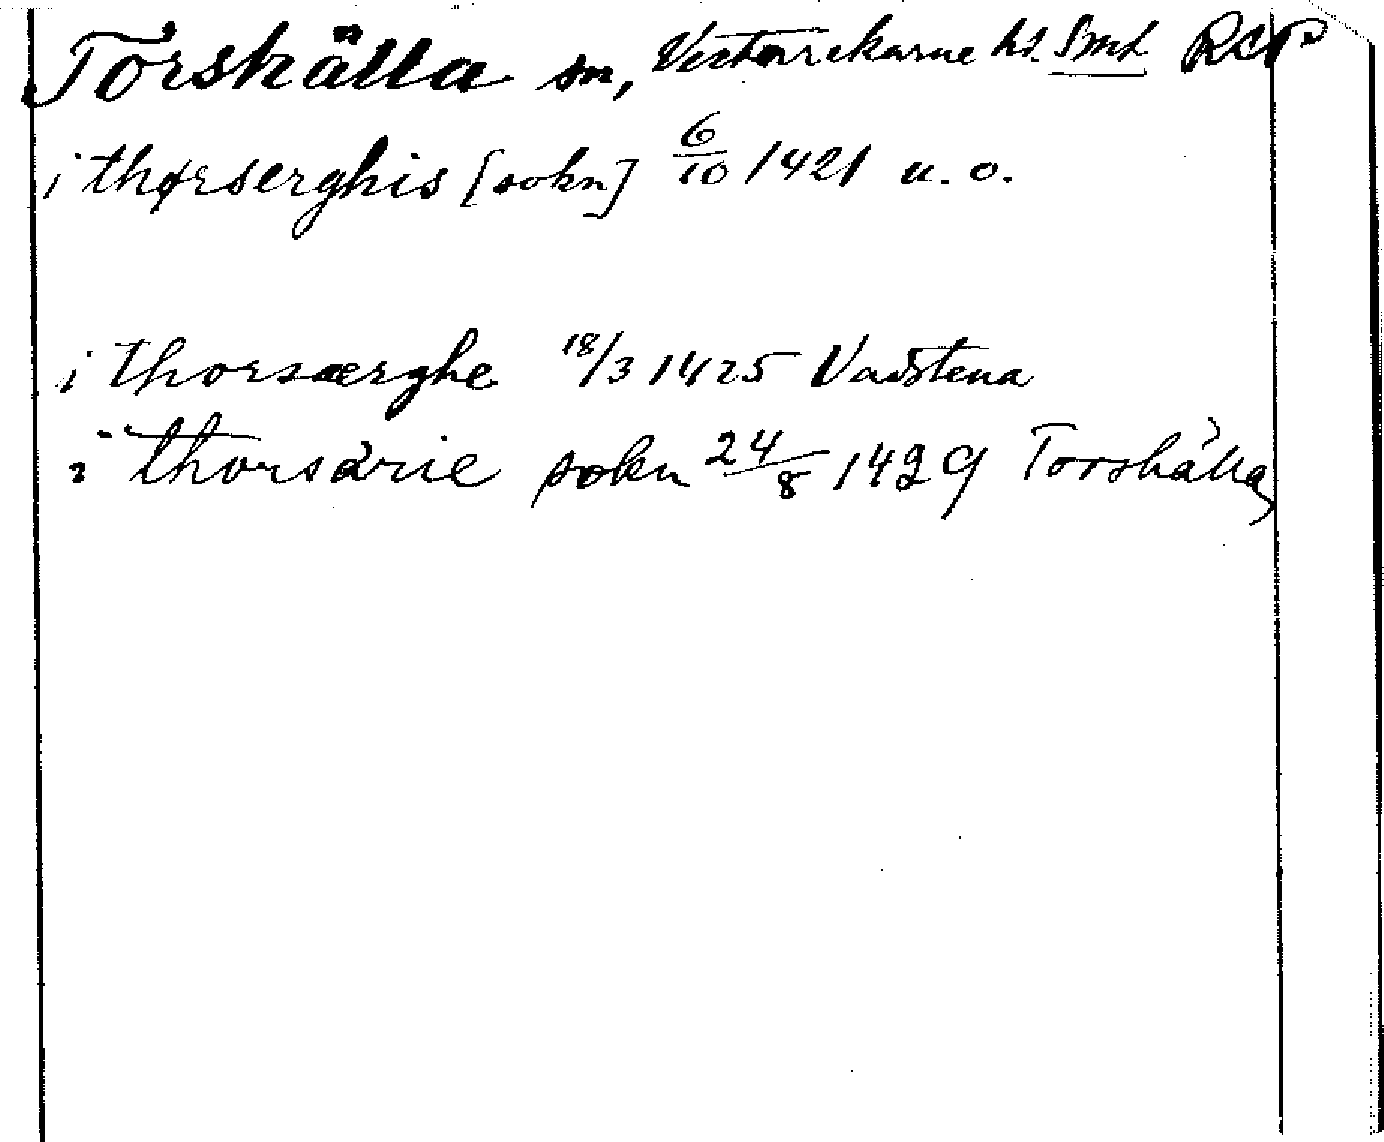 Torshälla sn, Vesterrekarne hd. Sml RAP
i thørserghis [sokn] 6/10 1421 u. o.
i thorsærghe 18/3 1425 Vadstena
i thorsärie sokn 24/8 1429 Torshälla